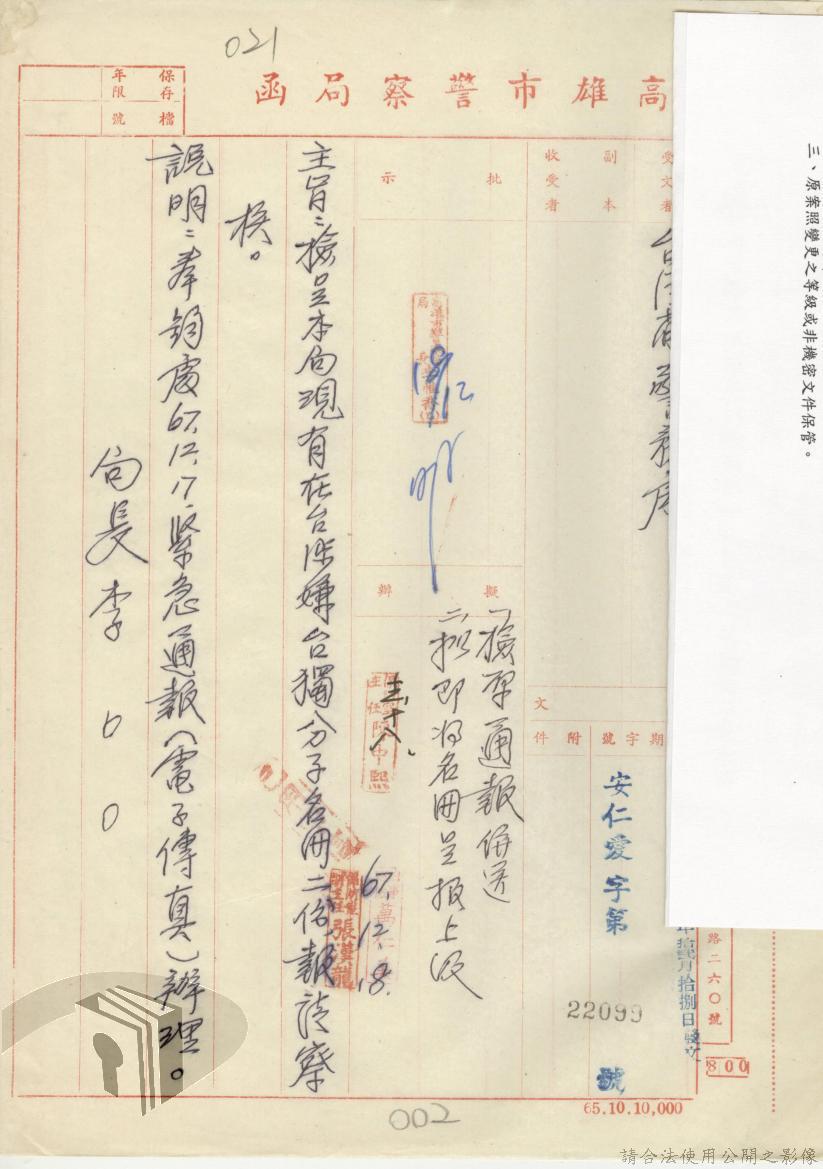 021
高雄市警察局函
保存年限
檔號
受文者
台灣省警務處
副本收受者
批示
擬辦
文
期
字號
附件
安仁愛字第
22099
號
拾捌日發文
路二六〇號
800
65.10.10,000
一、檢陳通報併送
二、擬即將名冊呈報上級
67.12.18.
張
主旨：檢呈本局現有在台涉嫌台獨分子名冊二份報請察
核。
說明：奉鈞處67.12.17.緊急通報（電子傳真）辦理。
局長李○○
三、原案照變更之等級或非機密文件保管。
002
請合法使用公開之影像